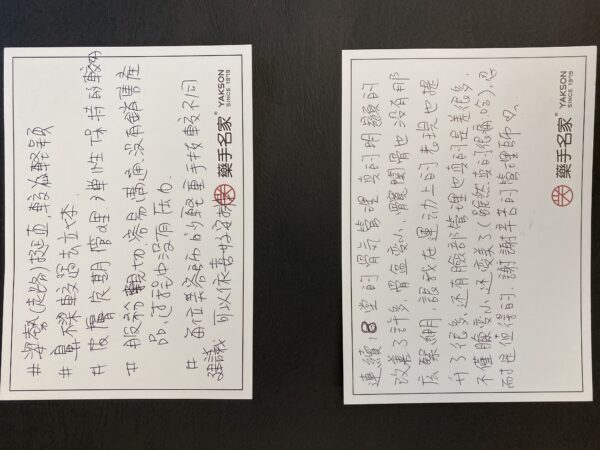 #姿勢(走路)挺直,較為輕鬆
#鼻樑較過去立体.
#皮膚定期管理,彈性保持的較好
#服務親切.容易溝通.沒有銷售產
品,过程中沒有压力.
#每位美容師的輕重手技較不同
建議 可以依喜好安排
藥手名家® YAKSON
SINCE 1979
連續18堂的骨気管理真的明顯的
改善了許多,骨盆变小、髖関骨也沒有那
広緊綳,讓我在運动上的表現也提
升了很多,还有臉部管理也真的是差很多,
不僅臉变小,还变美了(雖然真的很痛,哈),忍
耐是值得的,謝謝辛苦的管理師♡。
藥手名家® YAKSON
SINCE 1979